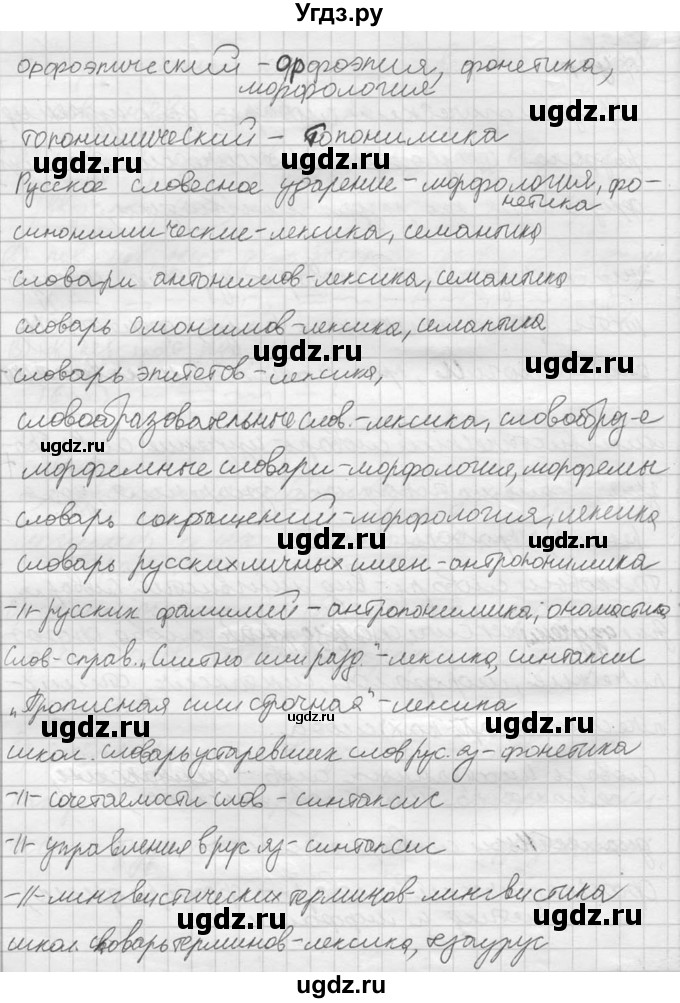 Угдз.ру
орфоэпический - орфоэпия, фонетика,
морфология
топонимический - Топонимика
ugdz.ru ugdz.ru
Русское словесное ударение - морфология, фо-
нетика
синонимические - лексика, семантика
ugdz.ru
словари антонимов - лексика, семантика
словарь омонимов - лексика, семантика
ugdz.ru
словарь эпитетов - лексика,
ugdz.ru
словообразовательные слов. - лексика, словообраз-е
ugdz.ru
морфемные словари - морфология, морфемы
словарь сокращений - морфология, лексика
ugdz.ru ugdz.ru
словарь русских личных имен - антропонимика
-//- русских фамилий - антропонимика, ономастика
ugdz.ru
Слов-справ. „Слитно или разд.“ - лексика, синтаксис
„Прописная или строчная“ - лексика
ugdz.ru ugdz.ru ugdz.ru
школ. словарь устаревших слов рус. яз - фонетика
-//- сочетаемости слов - синтаксис
ugdz.ru
-//- управления в рус яз - синтаксис
-//- лингвистических терминов - лингвистика
ugdz.ru
школ. словарь терминов - лексика,
ugdz.ru ugdz.ru